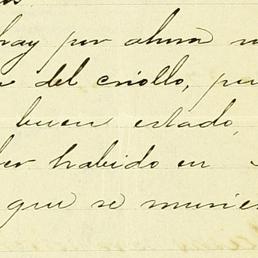 hay por ahora
del criollo,
buen estado,
habido en
que se